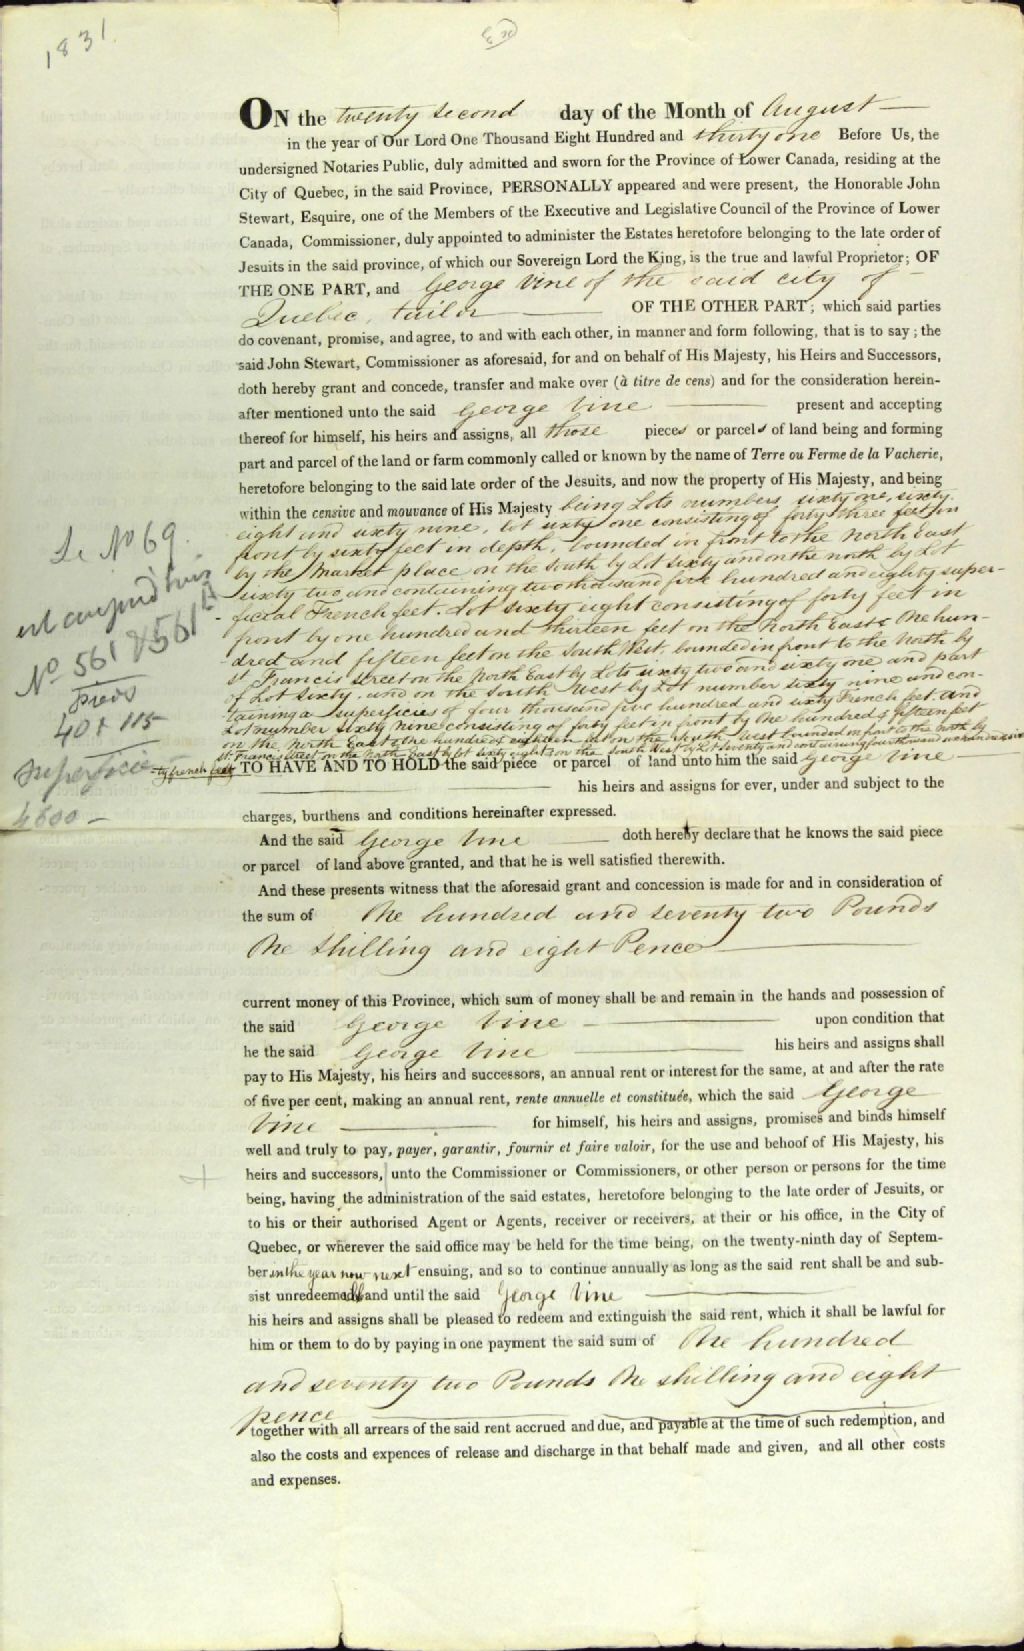 1831.
ON the twenty second day of the Month of August
in the year of Our Lord One Thousand Eight Hundred and thirty one Before Us, the
undersigned Notaries Public, duly admitted and sworn for the Province of Lower Canada, residing at the
City of Quebec, in the said Province, PERSONALLY appeared and were present, the Honorable John
Stewart, Esquire, one of the Members of the Executive and Legislative Council of the Province of Lower
Canada, Commissioner, duly appointed to administer the Estates heretofore belonging to the late order of
Jesuits in the said province, of which our Sovereign Lord the King, is the true and lawful Proprietor; OF
THE ONE PART, and George Vine of the said city of
Quebec, tailor OF THE OTHER PART; which said parties
do covenant, promise, and agree, to and with each other, in manner and form following, that is to say; the
said John Stewart, Commissioner as aforesaid, for and on behalf of His Majesty, his Heirs and Successors,
doth hereby grant and concede, transfer and make over (à titre de cens) and for the consideration herein-
after mentioned unto the said George Vine present and accepting
thereof for himself, his heirs and assigns, all those pieces or parcels of land being and forming
part and parcel of the land or farm commonly called or known by the name of Terre ou Ferme de la Vacherie,
heretofore belonging to the said late order of the Jesuits, and now the property of His Majesty, and being
within the censive and mouvance of His Majesty being Lots numbers sixty one, sixty
eight and sixty nine, lot sixty one consisting of forty three feet in
front by sixty feet in depth, bounded in front to the North East
by the Market place on the South by Lot sixty and on the north by Lot
sixty two, and containing two thousand five hundred and eighty super-
ficial French feet. Lot sixty eight consisting of forty feet in
front by one hundred and thirteen feet on the North East & One hun-
dred and fifteen feet on the South West, bounded in front to the North by
St Francis street on the North East by Lots sixty two and sixty one and part
of Lot sixty, and on the South West by Lot number sixty nine and con-
taining a superficies of four thousand five hundred and sixty French feet. And
Lot number sixty nine consisting of forty feet in front by One hundred & fifteen feet
on the North East & One hundred & feet on the South West bounded in front to the North by
St Francis street on the North East by lot sixty eight on the South West by Lot seventy and containing four thousand six hundred & six
-ty french feet TO HAVE AND TO HOLD the said piece or parcel of land unto him the said George Vine
his heirs and assigns for ever, under and subject to the
charges, burthens and conditions hereinafter expressed.
And the said George Vine doth hereby declare that he knows the said piece
or parcel of land above granted, and that he is well satisfied therewith.
And these presents witness that the aforesaid grant and concession is made for and in consideration of
the sum of One hundred and seventy two Pounds
One Shilling and eight Pence
current money of this Province, which sum of money shall be and remain in the hands and possession of
the said George Vine upon condition that
he the said George Vine his heirs and assigns shall
pay to His Majesty, his heirs and successors, an annual rent or interest for the same, at and after the rate
of five per cent, making an annual rent, rente annuelle et constituée, which the said George
Vine for himself, his heirs and assigns, promises and binds himself
well and truly to pay, payer, garantir, fournir et faire valoir, for the use and behoof of His Majesty, his
heirs and successors, unto the Commissioner or Commissioners, or other person or persons for the time
being, having the administration of the said estates, heretofore belonging to the late order of Jesuits, or
to his or their authorised Agent or Agents, receiver or receivers, at their or his office, in the City of
Quebec, or wherever the said office may be held for the time being, on the twenty-ninth day of Septem-
ber in the year now next ensuing, and so to continue annually as long as the said rent shall be and sub-
sist unredeemed and until the said George Vine
his heirs and assigns shall be pleased to redeem and extinguish the said rent, which it shall be lawful for
him or them to do by paying in one payment the said sum of One hundred
and seventy two Pounds One shilling and eight
pence
together with all arrears of the said rent accrued and due, and payable at the time of such redemption, and
also the costs and expences of release and discharge in that behalf made and given, and all other costs
and expenses.
Le No 69.
est aujourd'hui
No 561 & 561 A
pieds
40 x 115
Superficie
4600 -